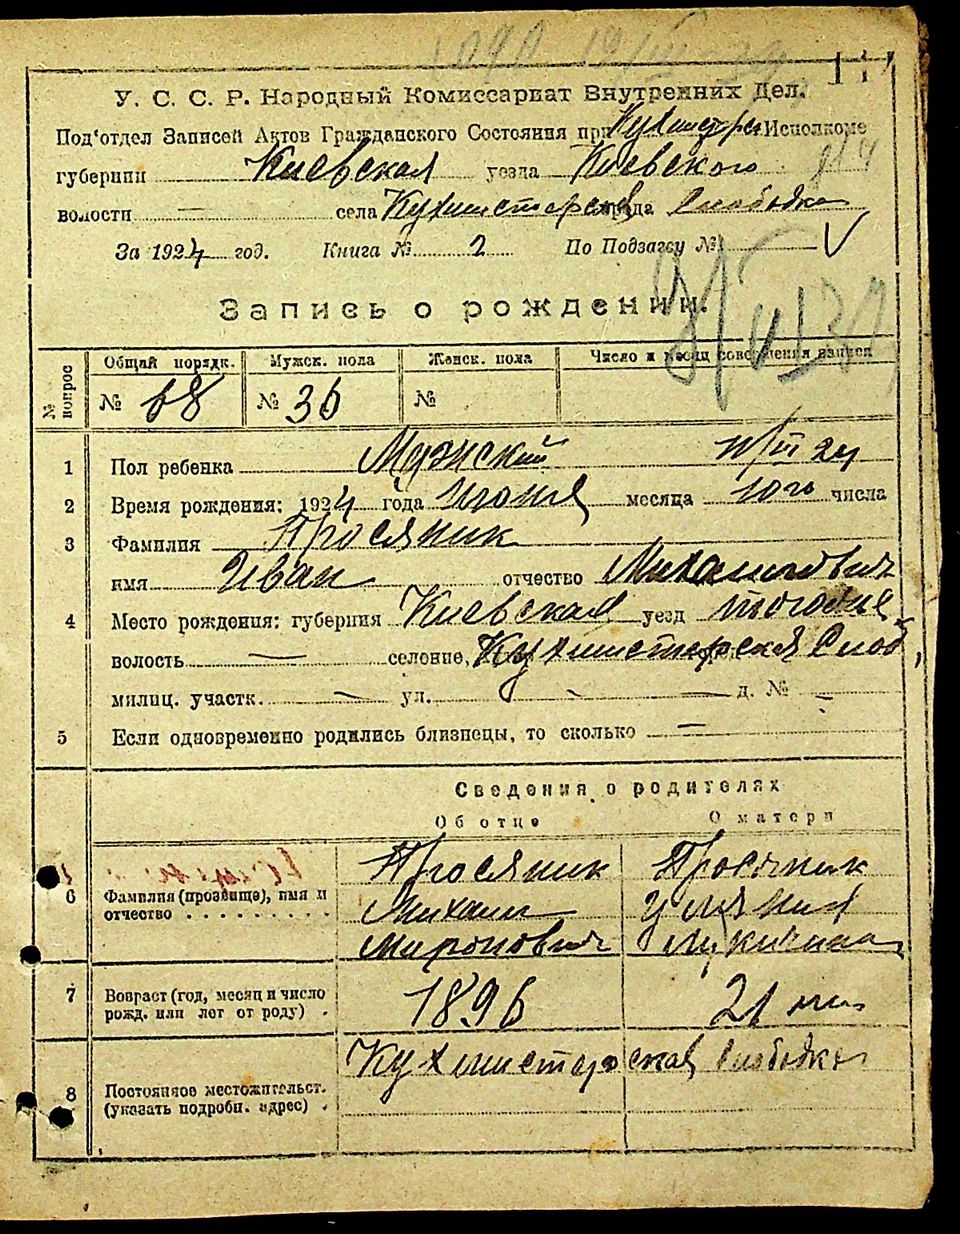 У. С. С. Р. Народный Комиссариат Внутренних Дел.
Под'отдел Записей Актов Гражданского Состояния при Исполкоме
губернии Киевская уезда Киевского
волости — села Кухмистерская Слободка
За 1924 год. Книга № 2 По Подзагсу №
Запись о рождении.
№ вопрос Общий порядк. Мужск. пола Женск. пола Число и месяц совершения записи
№ 68 № 36 №
1 Пол ребенка Мужский
2 Время рождения: 1924 года Июня месяца 10го числа
3 Фамилия Просяник
имя Иван отчество Михайлович
4 Место рождения: губерния Киевская уезд
волость — селение, Кухмистерская Слоб,
милиц. участк. — ул. — д. № —
5 Если одновременно родились близнецы, то сколько —
Сведения о родителях
Об отце О матери
6 Фамилия (прозвище), имя и отчество
Просяник Просяник
Михаил Улияния
Миронович Лукична
7 Возраст (год, месяц и число рожд. или лет от роду) . 1896 21
Кухмистерская Слободка
8 Постоянное местожительст. (указать подробн. адрес) .